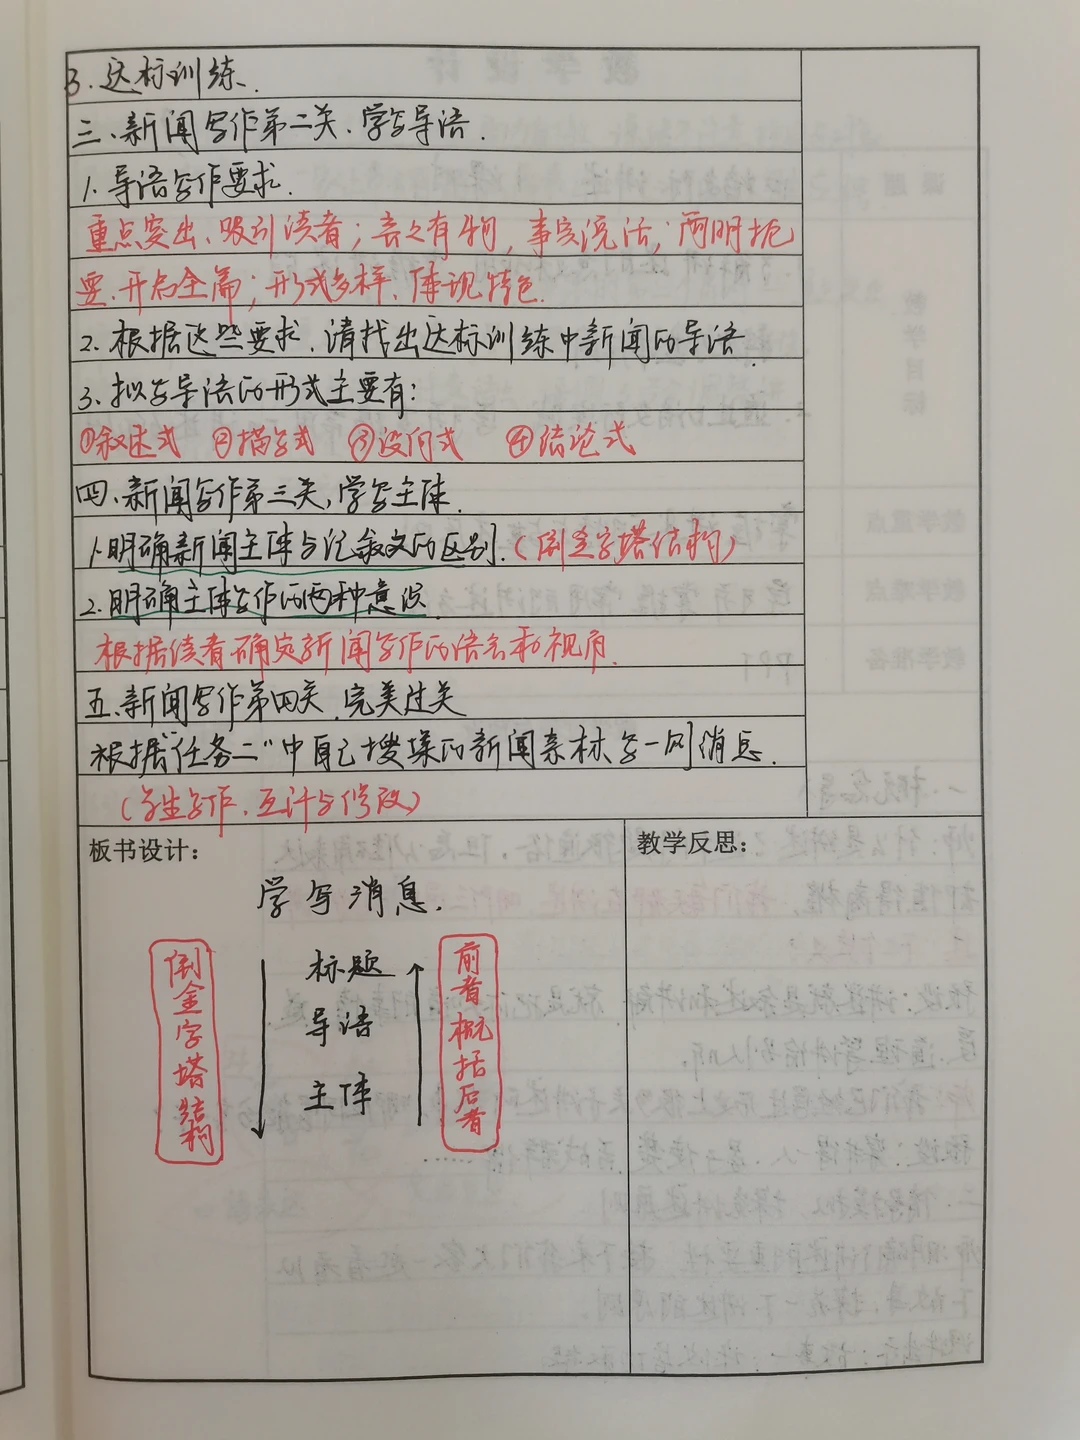 3.达标训练.
三、新闻写作第二关、学写导语.
1.导语写作要求.
重点突出、吸引读者；言之有物，事实说话；简明扼
要、开启全篇；形式多样、体现特色.
2.根据这些要求、请找出达标训练中新闻的导语.
3.拟写导语的形式主要有：
①叙述式 ②描写式 ③设问式 ④结论式
四、新闻写作第三关，学写主体.
1.明确新闻主体与记叙文的区别.（倒金字塔结构）
2.明确主体写作的两种意识
根据读者确定新闻写作的语言和视角.
五、新闻写作第四关、完美过关
根据“任务二”中自己搜集的新闻素材写一则消息.
（学生写作、互评与修改）
板书设计：
教学反思：
学写消息.
倒金字塔结构
标题
导语
主体
前者概括后者